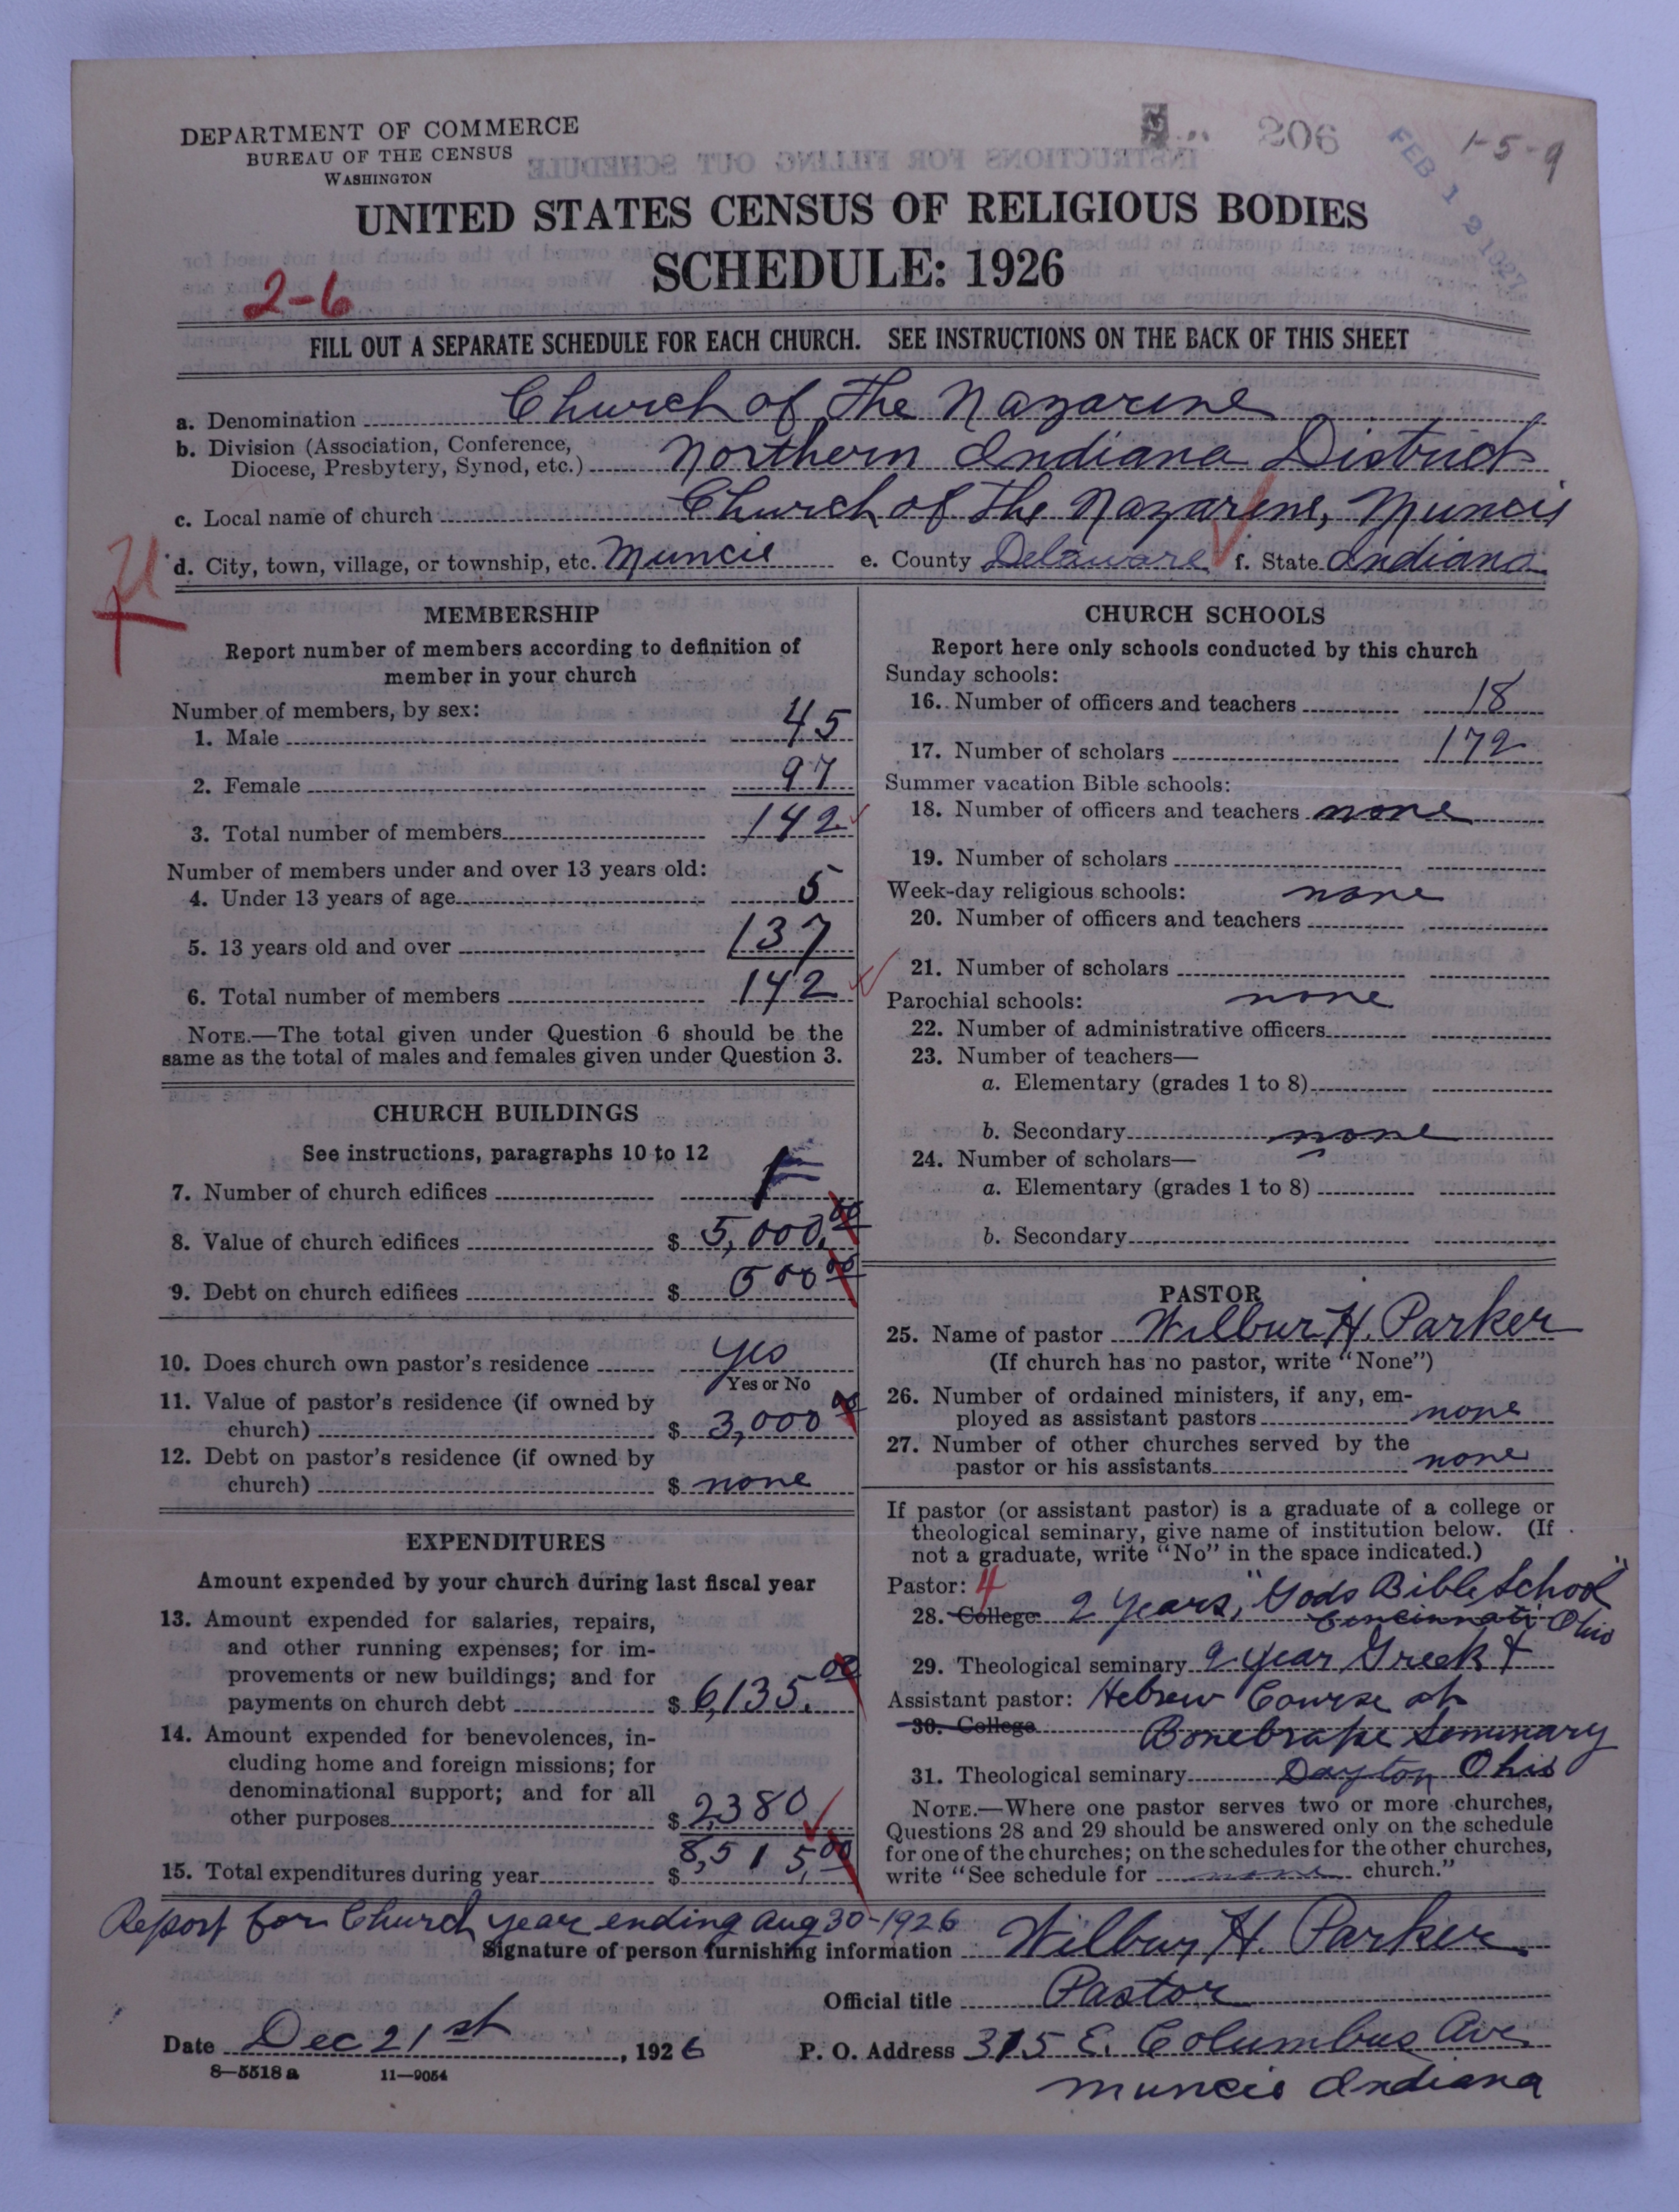 DEPARTMENT OF COMMERCE
BUREAU OF THE CENSUS
WASHINGTON
206
FEB 1 2 1927
1-5-9
UNITED STATES CENSUS OF RELIGIOUS BODIES
SCHEDULE: 1926
2-6
FILL OUT A SEPARATE SCHEDULE FOR EACH CHURCH. SEE INSTRUCTIONS ON THE BACK OF THIS SHEET
a. Denomination Church of the Nazarene
b. Division (Association, Conference, Diocese, Presbytery, Synod, etc.) Northern Indiana District
c. Local name of church Church of the Nazarene, Muncie
d. City, town, village, or township, etc. Muncie e. County Delaware f. State Indiana
MEMBERSHIP
Report number of members according to definition of
member in your church
Number of members, by sex:
1. Male 45
2. Female 97
3. Total number of members 142
Number of members under and over 13 years old:
4. Under 13 years of age 5
5. 13 years old and over 137
6. Total number of members 142
NOTE.—The total given under Question 6 should be the
same as the total of males and females given under Question 3.
CHURCH BUILDINGS
See instructions, paragraphs 10 to 12
7. Number of church edifices 1
8. Value of church edifices $ 5,000.00
9. Debt on church edifices $ 500 00
10. Does church own pastor's residence Yes
Yes or No
11. Value of pastor's residence (if owned by
church) $ 3,000 00
12. Debt on pastor's residence (if owned by
church) $ none
EXPENDITURES
Amount expended by your church during last fiscal year
13. Amount expended for salaries, repairs,
and other running expenses; for im-
provements or new buildings; and for
payments on church debt $ 6,135.00
14. Amount expended for benevolences, in-
cluding home and foreign missions; for
denominational support; and for all
other purposes $ 2,380
15. Total expenditures during year $ 8,515.00
CHURCH SCHOOLS
Report here only schools conducted by this church
Sunday schools:
16. Number of officers and teachers 18
17. Number of scholars 172
Summer vacation Bible schools:
18. Number of officers and teachers none
19. Number of scholars
Week-day religious schools: none
20. Number of officers and teachers
21. Number of scholars
Parochial schools: none
22. Number of administrative officers
23. Number of teachers—
a. Elementary (grades 1 to 8)
b. Secondary none
24. Number of scholars—
a. Elementary (grades 1 to 8)
b. Secondary
PASTOR
25. Name of pastor Wilbur H. Parker
(If church has no pastor, write "None")
26. Number of ordained ministers, if any, em-
ployed as assistant pastors none
27. Number of other churches served by the
pastor or his assistants none
If pastor (or assistant pastor) is a graduate of a college or
theological seminary, give name of institution below. (If
not a graduate, write "No" in the space indicated.)
Pastor: 4
28. College 2 years, "Gods Bible School"
Cincinnati Ohio
29. Theological seminary 2 year Greek &
Assistant pastor: Hebrew Course at
30. College Bonebrake Seminary
31. Theological seminary Dayton Ohio
NOTE.—Where one pastor serves two or more churches,
Questions 28 and 29 should be answered only on the schedule
for one of the churches; on the schedules for the other churches,
write "See schedule for none church."
Report for Church year ending Aug 30-1926
Signature of person furnishing information Wilbur H. Parker
Official title Pastor
Date Dec 21st, 1926 P. O. Address 315 E. Columbus Ave
Muncie Indiana
8—5518 a 11—9054